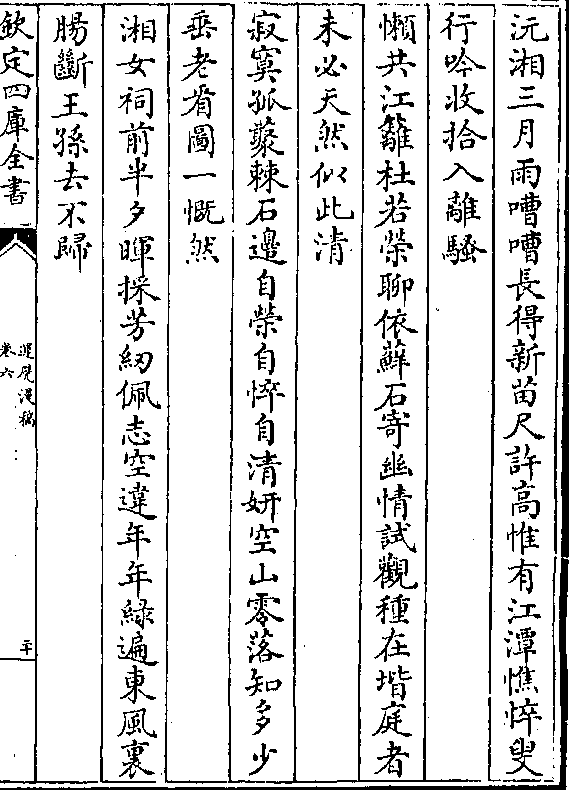 沅湘三月雨嘈嘈長得新苗尺許高惟有江潭憔悴叟
行吟收拾入離騷
懶共江蘺杜若榮聊依蘚石寄幽情試觀種在堦庭者
未必天然似此清
寂寞孤叢棘石邊自榮自悴自清妍空山零落知多少
垂老看圖一慨然
湘女祠前半夕暉採芳紉佩志空違年年綠遍東風裏
腸斷王孫去不歸
欽定四庫全書
卷六
二十